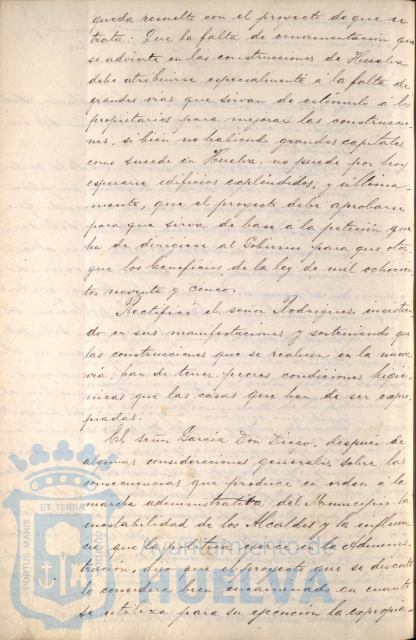 queda resuelto con el proyecto de que se
trata: Que la falta de ornamentación que
se advierte en las construcciones de Huelva
debe atribuirse especialmente á la falta de
grandes vias que sirvan de estímulo á los
propietarios para mejorar las construccio-
nes, si bien no habiendo grandes capitales
como sucede en Huelva, no puede por hoy
esperarse edificios expléndidos, y última-
mente, que el proyecto debe aprobarse
para que sirva de base a la petición que
ha de dirigirse al Gobierno para que otor-
gue los beneficios de la ley de mil ochocien-
tos noventa y cinco.
Rectificó el señor Rodriguez insistien-
do en sus manifestaciones y sosteniendo que
las construcciones que se realicen en la nueva
via, han de tener peores condiciones higié-
nicas que las casas que han de ser expro-
piadas.
El señor García Don Diego, despues de
algunas consideraciones generales sobre las
consecuencias que produce en orden a la
marcha administrativa del Municipio la
inestabilidad de los Alcaldes y la influen-
cia que la política ejerce en la Adminis-
tración, dijo que el proyecto que se discute
lo considera bien encaminado en cuanto
se utiliza para su ejecución la expropia-
PORTUS MARIS
ET TERRÆ
CUSTODIA
Ayuntamiento de
HUELVA